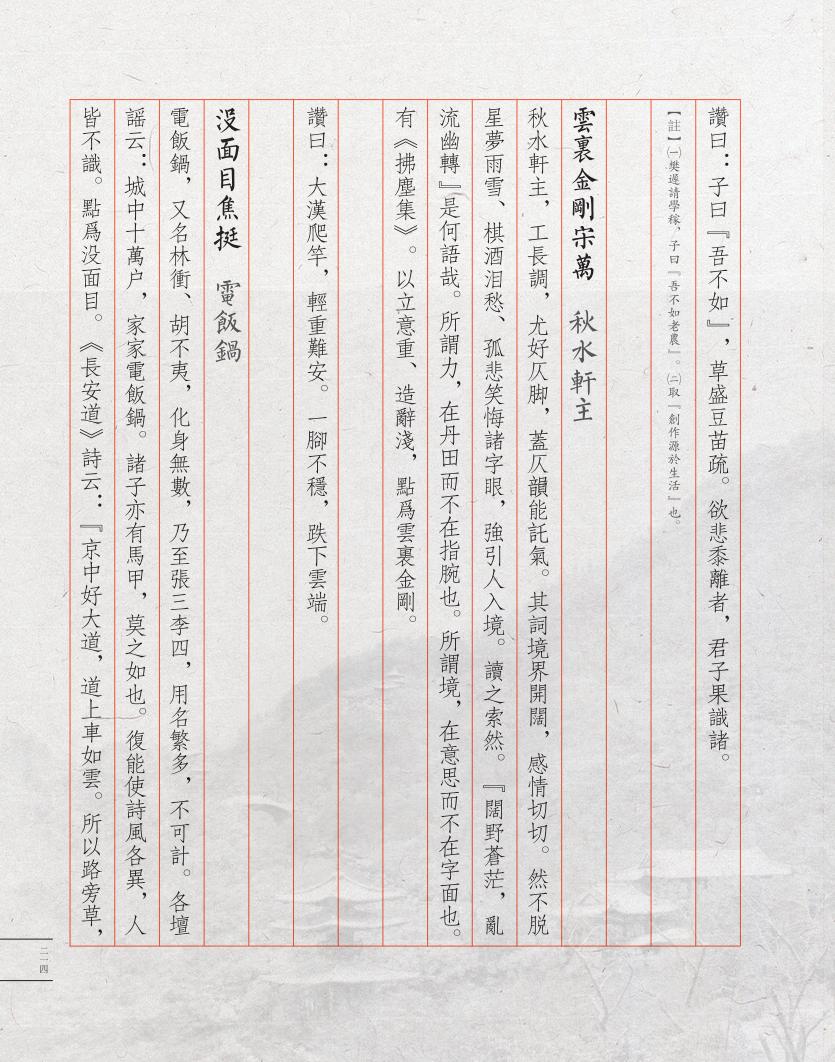 讚曰：子曰『吾不如』，草盛豆苗疏。欲悲黍離者，君子果識諸。
【註】㈠樊遲請學稼，子曰『吾不如老農』。㈡取『創作源於生活』也。
雲裏金剛宋萬　秋水軒主
秋水軒主，工長調，尤好仄脚，蓋仄韻能託氣。其詞境界開闊，感情切切。然不脱
星夢雨雪、棋酒泪愁、孤悲笑悔諸字眼，強引人入境。讀之索然。『闊野蒼茫，亂
流幽轉』是何語哉。所謂力，在丹田而不在指腕也。所謂境，在意思而不在字面也。
有《拂塵集》。以立意重、造辭淺，點爲雲裏金剛。
讚曰：大漢爬竿，輕重難安。一腳不穩，跌下雲端。
没面目焦挺　電飯鍋
電飯鍋，又名林衝、胡不夷，化身無數，乃至張三李四，用名繁多，不可計。各壇
謡云：城中十萬户，家家電飯鍋。諸子亦有馬甲，莫之如也。復能使詩風各異，人
皆不識。點爲没面目。《長安道》詩云：『京中好大道，道上車如雲。所以路旁草，
二一四